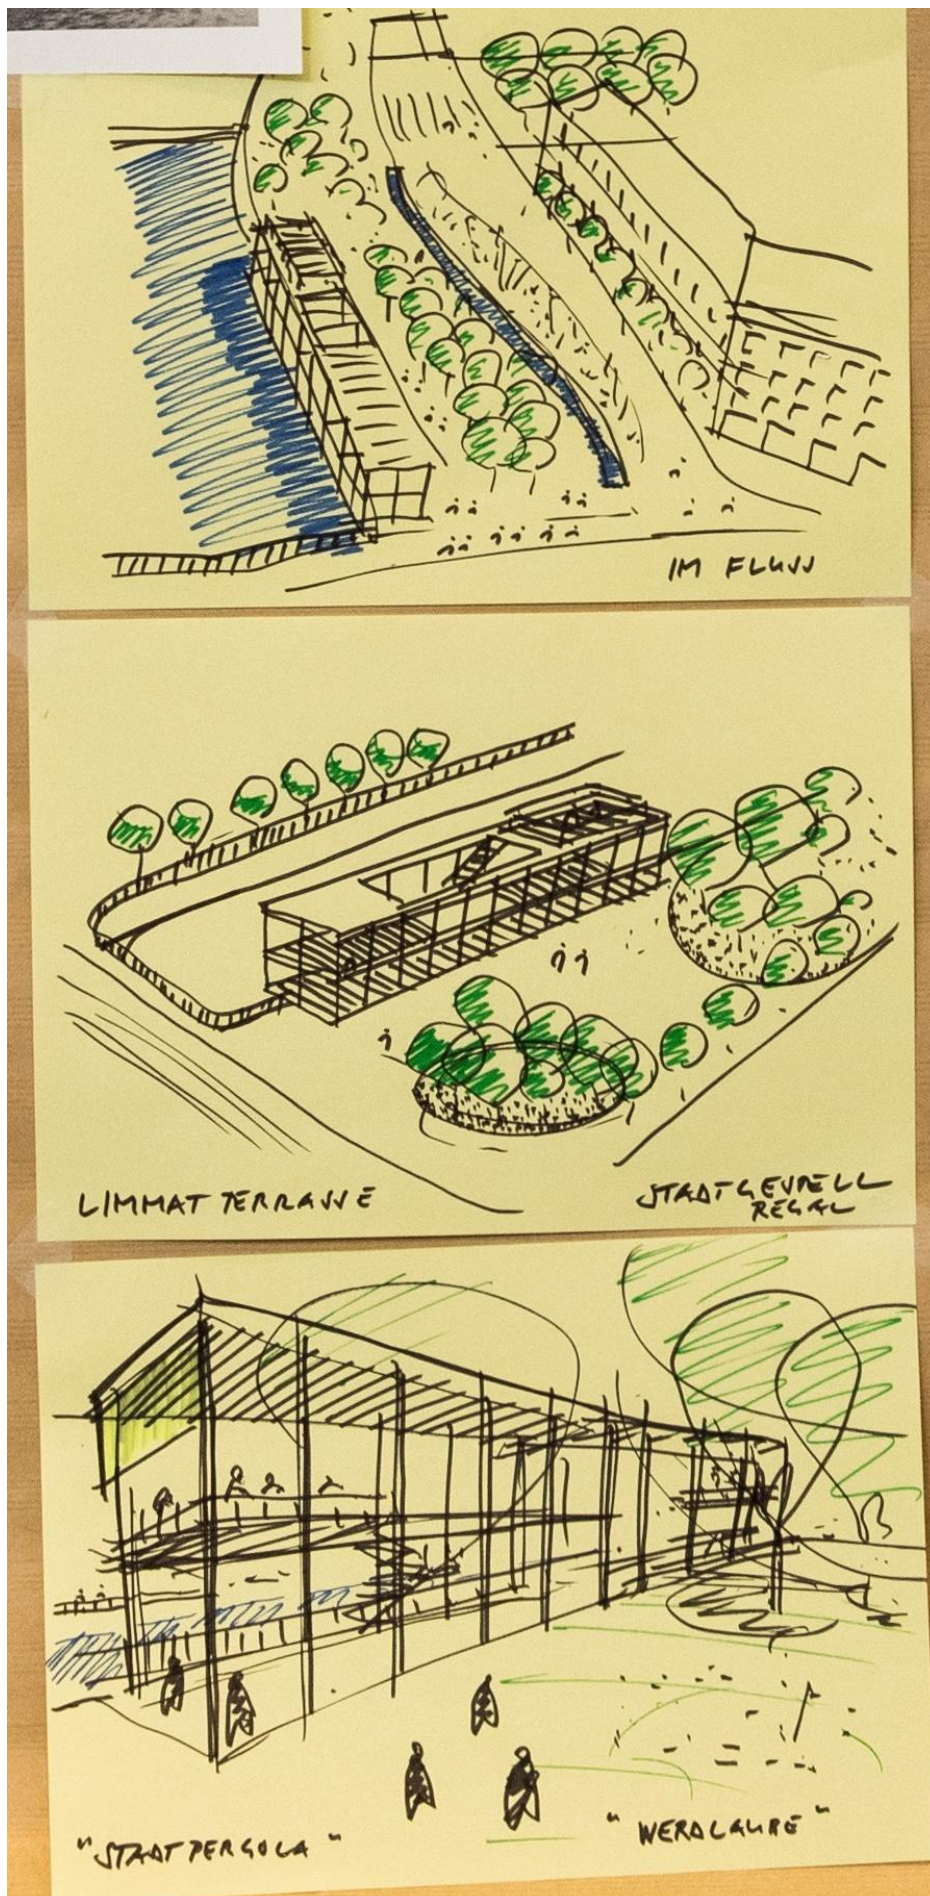 IM FLUSS
LIMMAT TERRASSE
STADTGESTELL
REGAL
"STADTPERGOLA"
"WERDLAUBE"